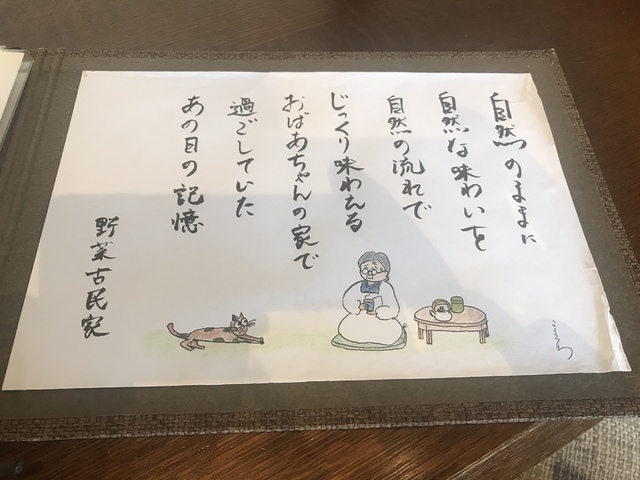 自然のままに
自然な味わいを
自然の流れで
じっくり味わえる
おばあちゃんの家で
過ごしていた
あの日の記憶
野菜古民家